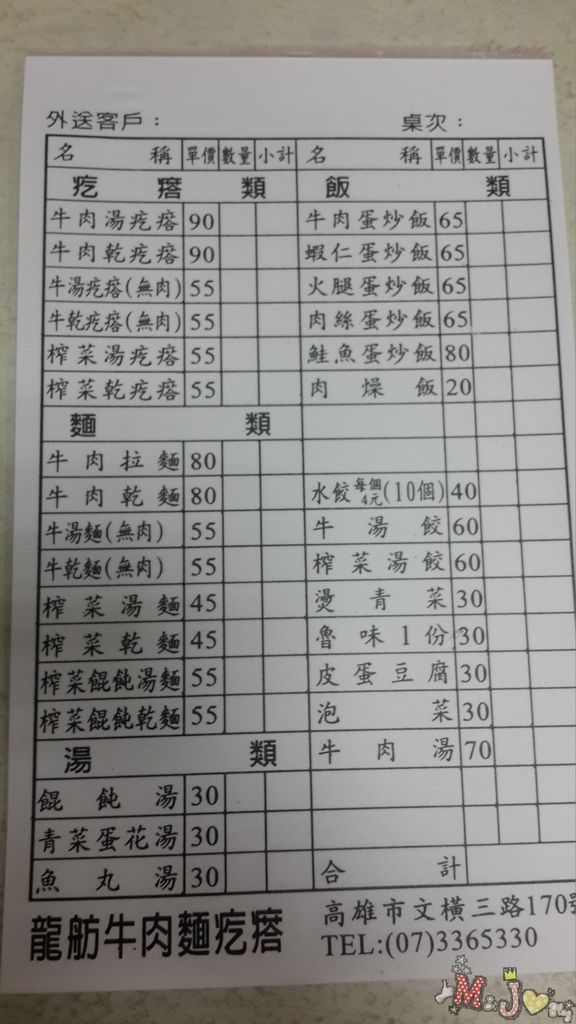 外送客戶： 桌次：
名稱 單價 數量 小計 名稱 單價 數量 小計
疙瘩類 飯類
牛肉湯疙瘩 90 牛肉蛋炒飯 65
牛肉乾疙瘩 90 蝦仁蛋炒飯 65
牛湯疙瘩(無肉) 55 火腿蛋炒飯 65
牛乾疙瘩(無肉) 55 肉絲蛋炒飯 65
榨菜湯疙瘩 55 鮭魚蛋炒飯 80
榨菜乾疙瘩 55 肉燥飯 20
麵類
牛肉拉麵 80
牛肉乾麵 80 水餃每個4元(10個) 40
牛湯麵(無肉) 55 牛湯餃 60
牛乾麵(無肉) 55 榨菜湯餃 60
榨菜湯麵 45 燙青菜 30
榨菜乾麵 45 魯味1份 30
榨菜餛飩湯麵 55 皮蛋豆腐 30
榨菜餛飩乾麵 55 泡菜 30
湯類 牛肉湯 70
餛飩湯 30
青菜蛋花湯 30
魚丸湯 30 合計
龍舫牛肉麵疙瘩
高雄市文橫三路170號
TEL:(07)3365330
M&J